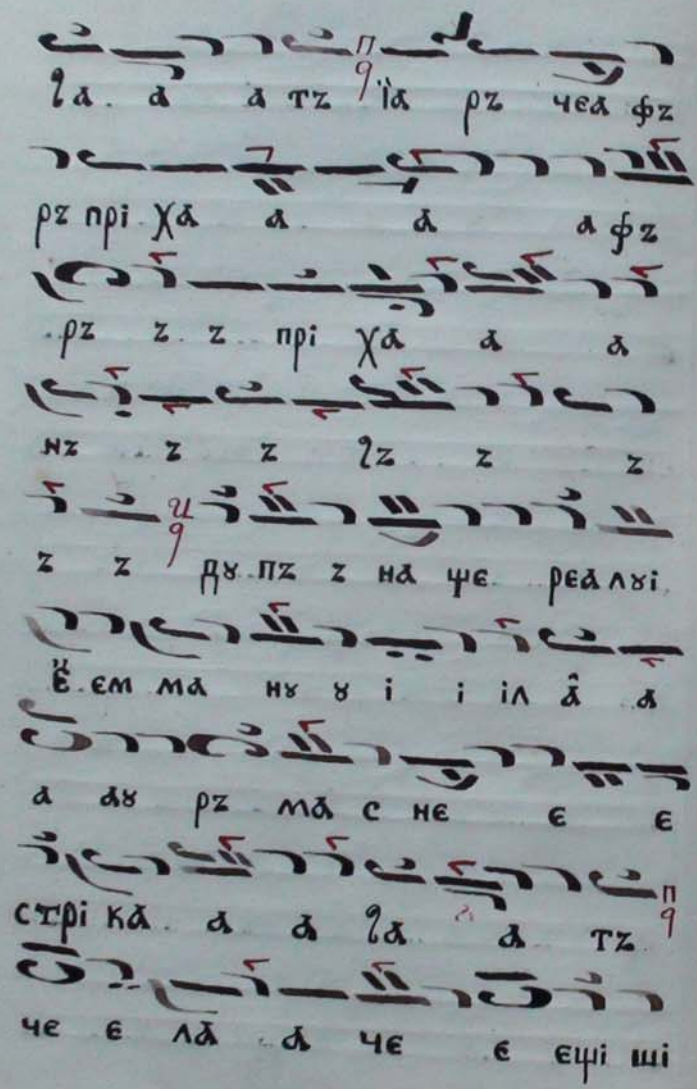 ҁа. а а тъ їа ръ чеа фъ
ръ прі ха а а а фъ
ръ ъ ъ прі ха а а
нъ ъ ъ ҁъ ъ ъ
ъ ъ дꙋ пъ ъ на ще реа лꙋі
Е ем ма нꙋ ꙋ і і іл а а
а аꙋ ръ ма с не е е
стрі ка а а ҁа а тъ
че е ла а че е ещі ші